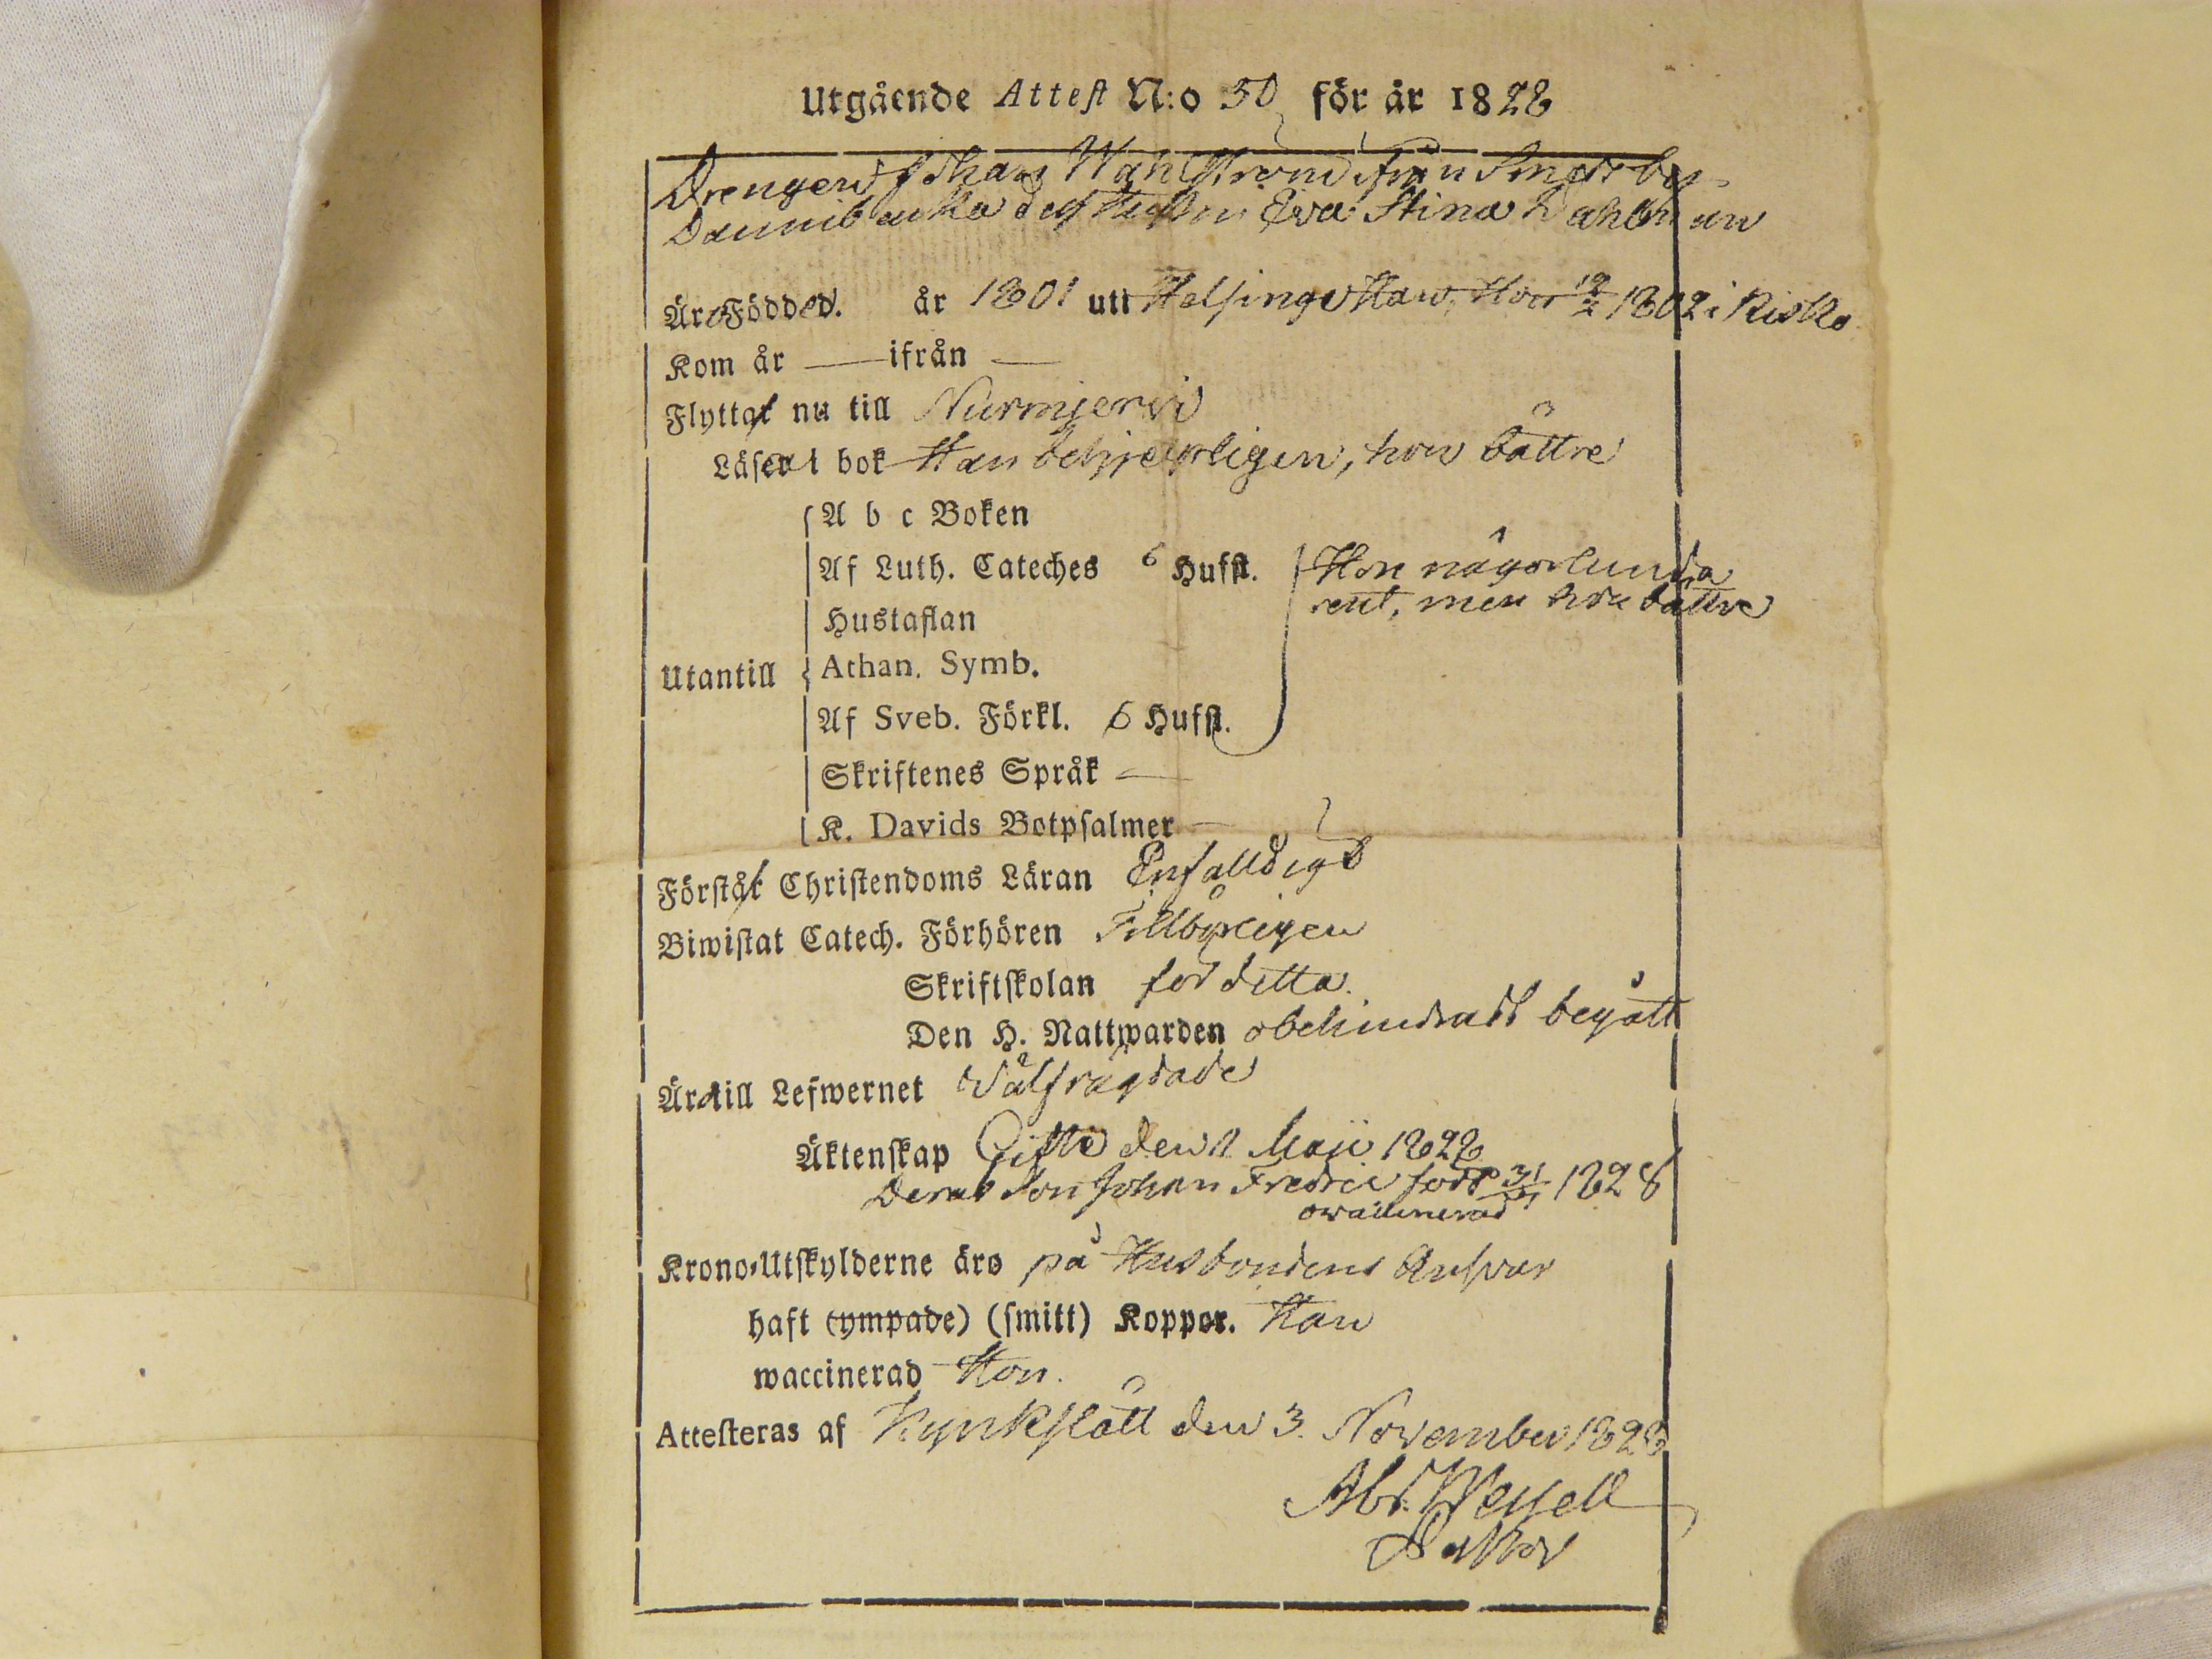 Utgående Attest N:o 50 för år 1828
Drengen Johan Wahlström från Smeds by
Dannibacka des Hustru Eva Stina Dahlman
Äro Födded. år 1801 uti Helsinge Han, Hon 12/2 1802 i Kisko
Kom år — ifrån —
Flyttat nu till Nurmjervi
Läser i bok Han behjelpligen, hon bättre
A b c Boken
Af Luth. Cateches 6 Hufst. Han någorlunda
rent, men hon bättre
Hustaflan
Utantill Athan. Symb.
Af Sveb. Förkl. 6 Hufst.
Skriftenes Språk —
K. Davids Botpsalmer —
Förstår Christendoms Läran Enfalldigt
Biwistat Catech. Förhören Tillbörligen
Skriftskolan för detta.
Den H. Nattwarden obehindradt begått
Äro till Lefwernet Wälfrägdade
Äktenskap Gifte den 11 Maji 1828
Deras Son Johan Fredric född 31/ 1828
owaccinerad
Krono-Utskylderne äro på Husbondens Answar
haft (ympade) (smitt) Koppor. Han
waccinerad Hon.
Attesteras af Kyrkslätt den 3. November 1828
Abr. Wessell
Pastor